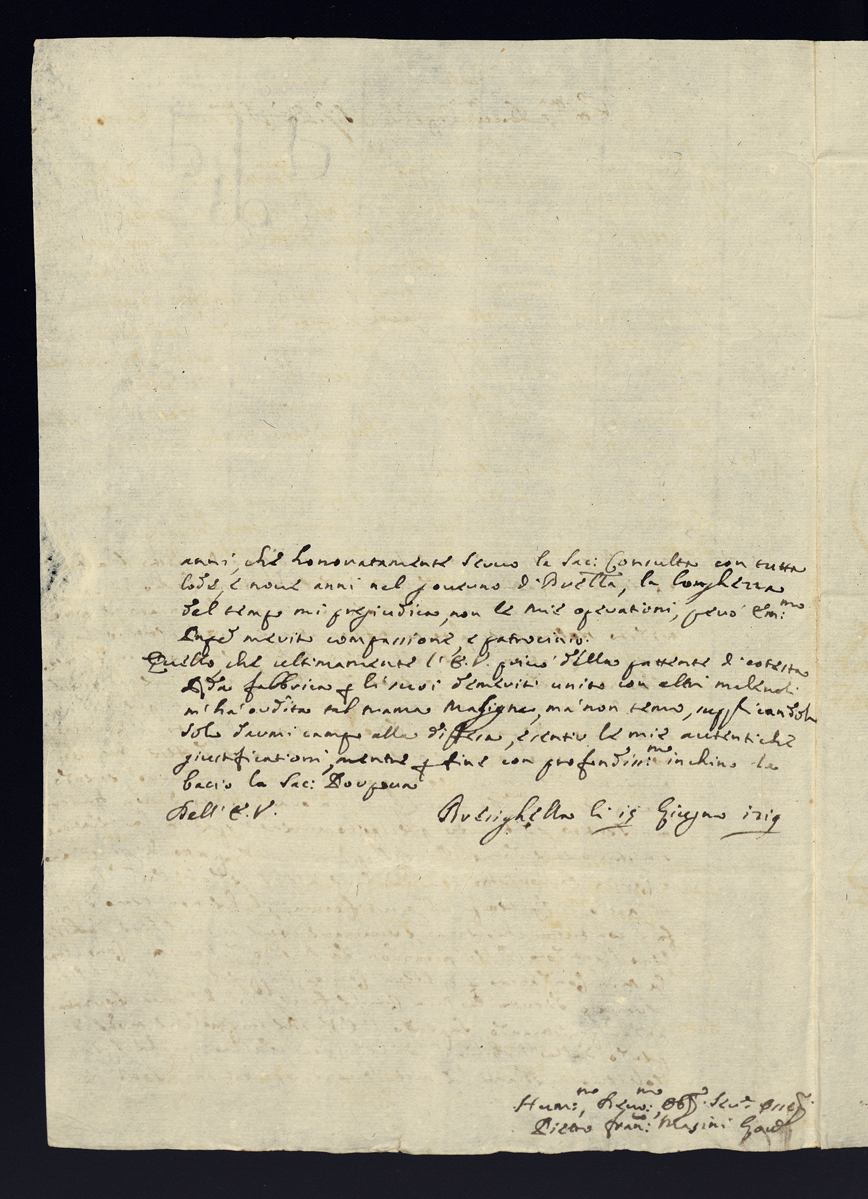 anni, che honoratamente servo la Sac: Consulta con tutta
lode, e nove anni nel governo di la longhezza
del tempo mi pregiudica, non le mie operationi, però Em:mo
merito compassione, e patrocinio.
Quello, che ultimamente l'E.V. privò della pattente di cotesta
fabbrica li suoi demeriti unito con altri malevoli
m'ha ordita tal trama maligna, ma non temo, supplicandola
solo darmi campo alla diffesa, e sentir le mie autentiche
giustificationi, mentre fine con profondiss:mo inchino le
bacio la Sac: Porpora
Dell'E.V. Brisighella li Giugno
Humi:mo, Devo:mo, Obb: Ser:
Pietro Fran: Masini Gov: